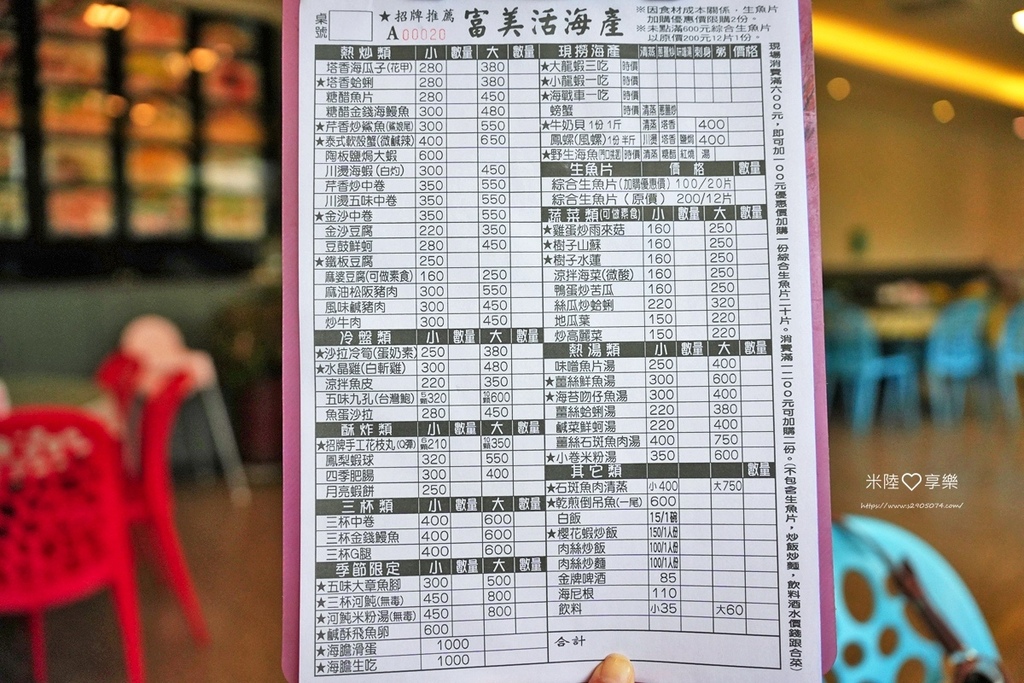 桌號
★招牌推薦 富美活海產
A00020
※因食材成本關係,生魚片
加購優惠價限購2份。
※未點滿600元綜合生魚片
以原價200元12片1份。
熱炒類 小 數量 大 數量
塔香海瓜子(花甲) 280 380
★塔香蛤蜊 280 380
糖醋魚片 280 450
糖醋金錢海鰻魚 300 480
★芹香炒鯊魚(鯊娘尾) 300 550
★泰式軟殼蟹(微鹹辣) 400 650
陶板鹽焗大蝦 600
川燙海蝦(白灼) 300 450
芹香炒中卷 350 550
川燙五味中卷 350 550
★金沙中卷 350 550
金沙豆腐 220 350
豆鼓鮮蚵 280 450
★鐵板豆腐 250
麻婆豆腐(可做素食) 160 250
麻油松阪豬肉 300 550
風味鹹豬肉 300 450
炒牛肉 300 450
冷盤類 小 數量 大 數量
★沙拉冷筍(蛋奶素) 250 380
★水晶雞(白斬雞) 300 480
涼拌魚皮 220 350
五味九孔(台灣鮑) 320 600
魚蛋沙拉 280 450
酥炸類 小 數量 大 數量
★招牌手工花枝丸(Q彈) 210 350
鳳梨蝦球 320 550
四季肥腸 300 400
月亮蝦餅 250
三杯類 小 數量 大 數量
三杯中卷 400 600
三杯金錢鰻魚 400 600
三杯G腿 400 600
季節限定 小 數量 大 數量
★五味大章魚腳 300 500
★三杯河魨(無毒) 450 800
★河魨米粉湯(無毒) 450 800
★鹹酥飛魚卵 600
★海膽滑蛋 1000
★海膽生吃 1000
現撈海產 清蒸 蔥薑炒 味噌湯 刺身 粥 價格
★大龍蝦三吃 時價
★小龍蝦一吃 時價
★海戰車一吃 時價
螃蟹 時價 清蒸 蔥薑炒
★牛奶貝 1份1斤 清蒸 塔香 400
鳳螺(風螺)1份半斤 川燙 塔香 鹽焗 400
★野生海魚 時價 清蒸 糖醋 紅燒 湯
生魚片 價格 數量
綜合生魚片(加購優惠價) 100/20片
綜合生魚片(原價) 200/12片
蔬菜類(可做素食) 小 數量 大 數量
★雞蛋炒雨來菇 160 250
★樹子山蘇 160 250
★樹子水蓮 160 250
涼拌海菜(微酸) 160 250
鴨蛋炒苦瓜 160 250
絲瓜炒蛤蜊 220 320
地瓜葉 150 220
炒高麗菜 150 220
熱湯類 小 數量 大 數量
味噌魚片湯 250 400
★薑絲鮮魚湯 300 600
★海苔吻仔魚湯 300 400
薑絲蛤蜊湯 220 380
鹹菜鮮蚵湯 220 400
薑絲石斑魚肉湯 400 750
★小卷米粉湯 350 600
其它類 數量
★石斑魚肉清蒸 小400 大750
★乾煎倒吊魚(一尾) 600
白飯 15/1碗
★櫻花蝦炒飯 150/1人份
肉絲炒飯 100/1人份
肉絲炒麵 100/1人份
金牌啤酒 85
海尼根 110
飲料 小35 大60
合計
現場消費滿六00元,即可加一00元優惠價加購一份綜合生魚片二十片。消費滿一二00元可加購二份。(不包含生魚片,炒飯炒麵,飲料酒水價錢跟合菜)
米陸♡享樂
https://www.s2905074.com/